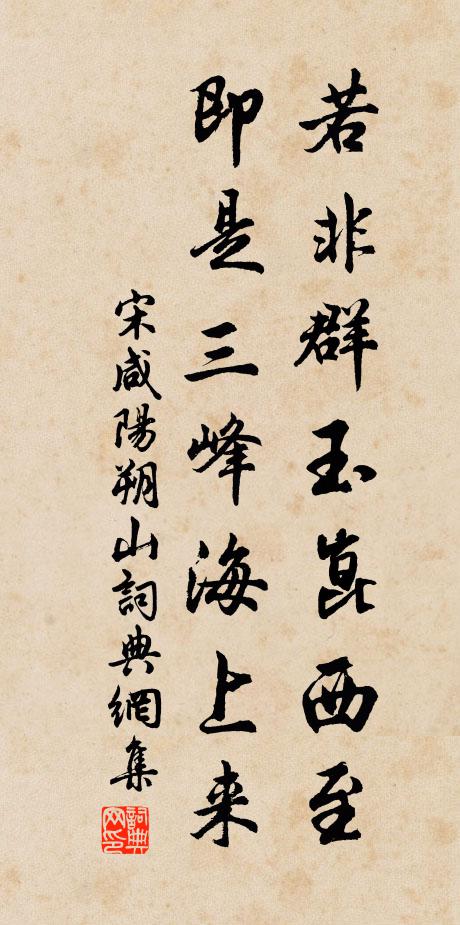 若非群玉崑西至
即是三峰海上来
宋咸陽朔山詞典網集
詞典网印